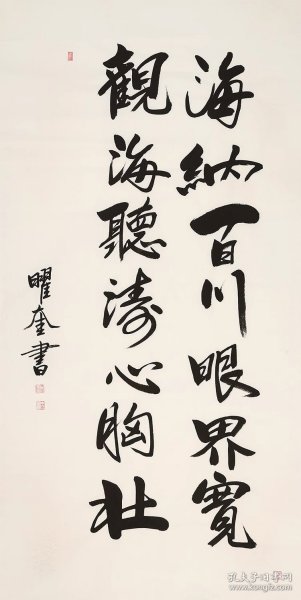 海納百川眼界寬
觀海聽濤心胸壯
曜奎書
孔夫子旧书网
www.kongfz.com